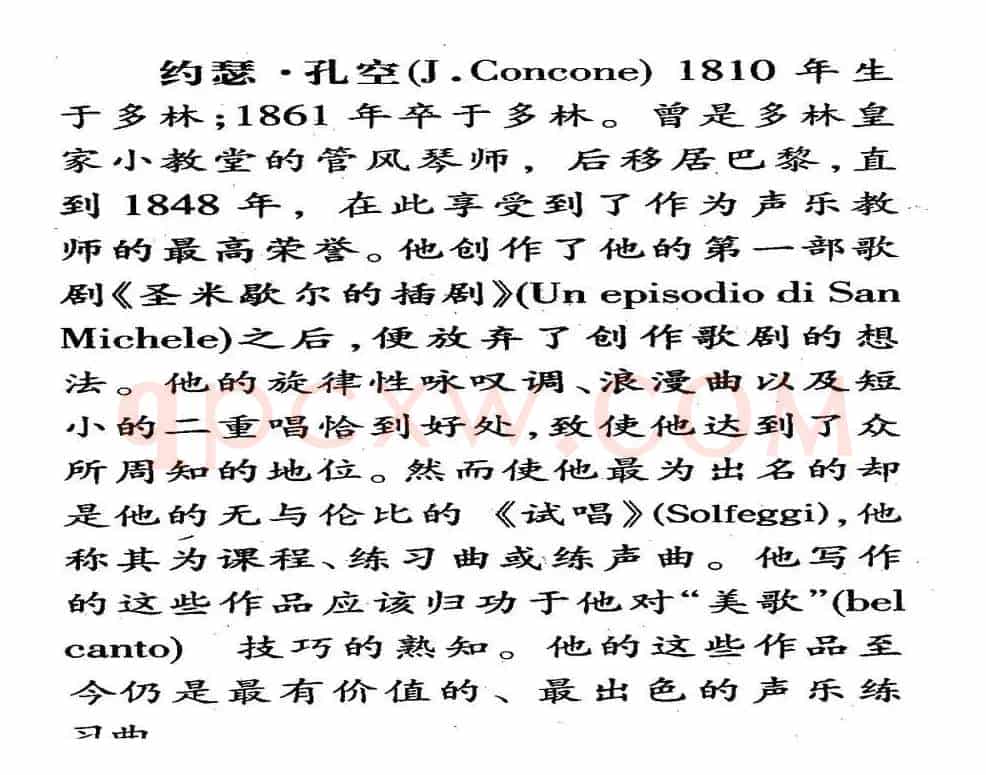 约瑟·孔空(J.Concone) 1810 年生
于多林;1861 年卒于多林。曾是多林皇
家小教堂的管风琴师, 后移居巴黎,直
到 1848 年, 在此享受到了作为声乐教
师的最高荣誉。他创作了他的第一部歌
剧《圣米歇尔的插剧》(Un episodio di San
Michele)之后,便放弃了创作歌剧的想
法。他的旋律性咏叹调、浪漫曲以及短
小的二重唱恰到好处,致使他达到了众
所周知的地位。然而使他最为出名的却
是他的无与伦比的《试唱》(Solfeggi),他
称其为课程、练习曲或练声曲。他写作
的这些作品应该归功于他对“美歌”(bel
canto) 技巧的熟知。他的这些作品至
今仍是最有价值的、最出色的声乐练
习曲
qpcxw.COM